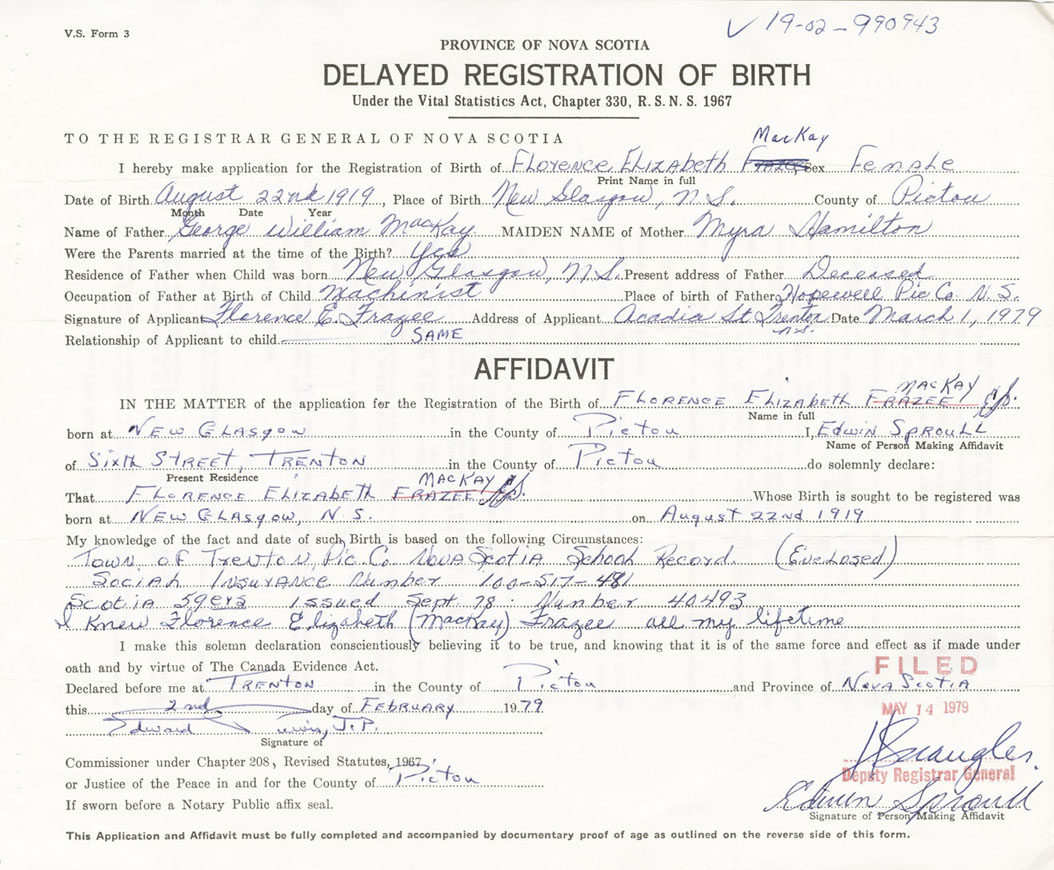 V.S. Form 3
✓ 19-02-990943
PROVINCE OF NOVA SCOTIA
DELAYED REGISTRATION OF BIRTH
Under the Vital Statistics Act, Chapter 330, R.S.N.S. 1967
TO THE REGISTRAR GENERAL OF NOVA SCOTIA
MacKay
I hereby make application for the Registration of Birth of Florence Elizabeth Frazee Sex Female
Print Name in full
Date of Birth August 22nd 1919, Place of Birth New Glasgow, N.S. County of Pictou
Month Date Year
Name of Father George William MacKay MAIDEN NAME of Mother Myra Hamilton
Were the Parents married at the time of the Birth? Yes
Residence of Father when Child was born New Glasgow, N.S. Present address of Father Deceased
Occupation of Father at Birth of Child Machinist Place of birth of Father Hopewell Pic Co. N.S.
Signature of Applicant Florence E. Frazee Address of Applicant Acadia St Trenton N.S. Date March 1, 1979
Relationship of Applicant to child SAME
AFFIDAVIT
MacKay
IN THE MATTER of the application for the Registration of the Birth of Florence Elizabeth Frazee
Name in full
born at New Glasgow in the County of Pictou I, Edwin Sproull
Name of Person Making Affidavit
of Sixth Street, Trenton in the County of Pictou do solemnly declare:
Present Residence
MacKay
That Florence Elizabeth Frazee Whose Birth is sought to be registered was
born at New Glasgow, N.S. on August 22nd 1919
My knowledge of the fact and date of such Birth is based on the following Circumstances:
Town of Trenton, Pic. Co. Nova Scotia School Record. (Enclosed)
Social Insurance Number 100-517-481
Scotia 59ers Issued Sept. 78. Number 40493
I Knew Florence Elizabeth (MacKay) Frazee all my lifetime
I make this solemn declaration conscientiously believing it to be true, and knowing that it is of the same force and effect as if made under
oath and by virtue of The Canada Evidence Act.
FILED
Declared before me at Trenton in the County of Pictou and Province of Nova Scotia
this 2nd day of February 1979
MAY 14 1979
Edward J.P.
Signature of
Commissioner under Chapter 208, Revised Statutes, 1967
or Justice of the Peace in and for the County of Pictou
Deputy Registrar General
If sworn before a Notary Public affix seal.
Edwin Sproull
Signature of Person Making Affidavit
This Application and Affidavit must be fully completed and accompanied by documentary proof of age as outlined on the reverse side of this form.